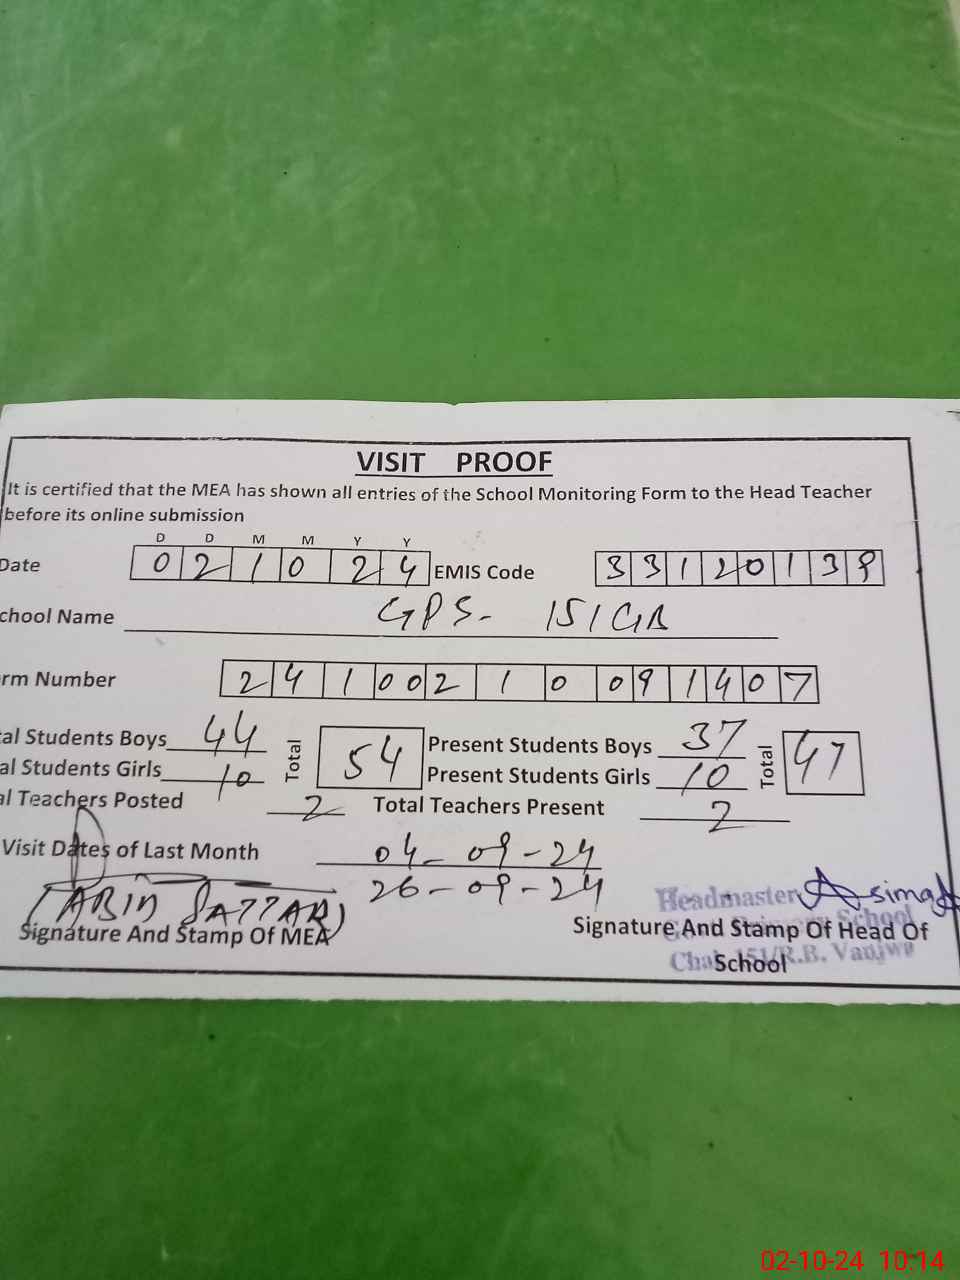 VISIT PROOF
It is certified that the MEA has shown all entries of the School Monitoring Form to the Head Teacher
before its online submission
D D M M Y Y
Date 0 2 1 0 2 4 EMIS Code 3 3 1 2 0 1 3 9
chool Name GPS- 151GB
rm Number 2 4 1 0 0 2 1 0 0 9 1 4 0 7
al Students Boys 44 Total 54 Present Students Boys 37 Total 47
al Students Girls 10 Present Students Girls 10
al Teachers Posted 2 Total Teachers Present 2
Visit Dates of Last Month 04-09-24
26-09-24
(ABID SATTAR) Headmaster Asima
Signature And Stamp Of MEA Signature And Stamp Of Head Of
School
Primary School
Chak 151/R.B.
02-10-24 10:14